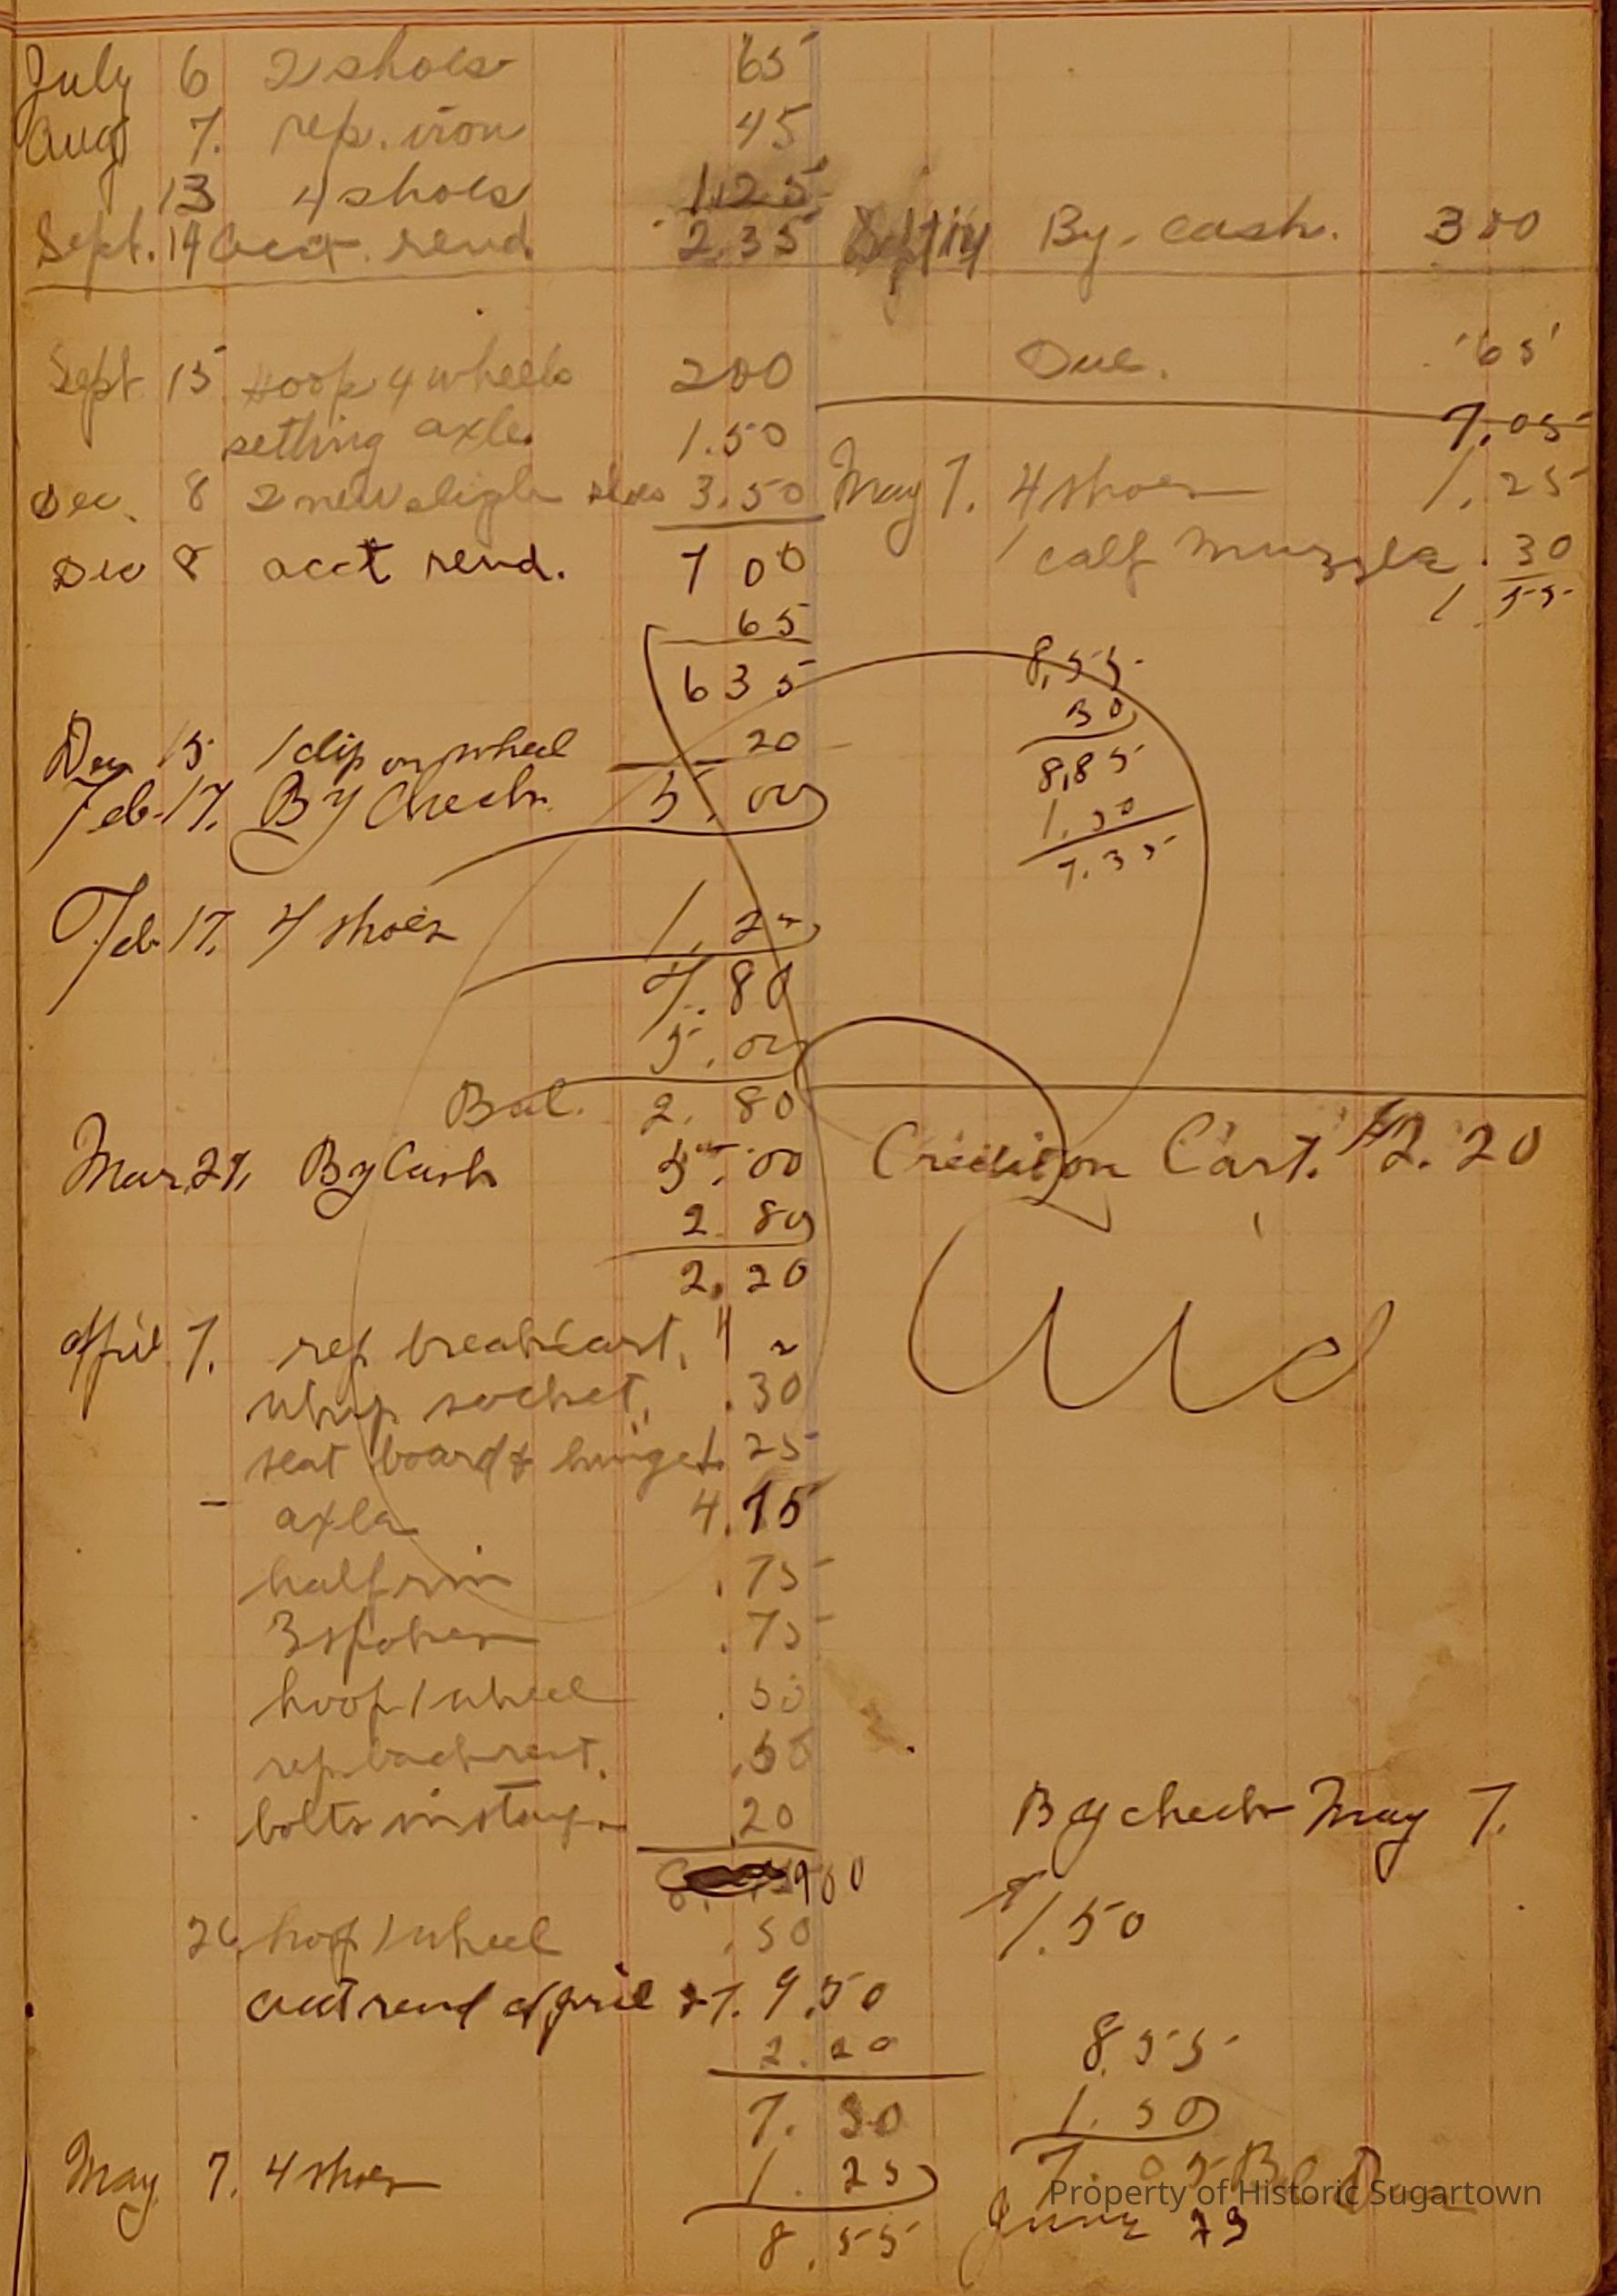 July 6 2 shoes 65
Aug 7. rep. iron 45
13 4 shoes 1.25
Sept. 14 acct. rend. 2.35 Sept 14 By. cash. 300
Due. 65
Sept 15 hoop 4 wheels 200
7.05
setting axle 1.50
Dec. 8 2 new sleigh shoes 3.50 May 7. 4 shoes 1.25
Dec 8 acct rend. 7 00 1 calf muzzle .30
1.55
65
635 8.55
30
Dec 15 1 clip on wheel 20 8.85
Feb. 17. By Check 5.00 1.50
7.35
Feb. 17. 4 shoes 1.25
7.80
5.00
Bal. 2.80
Mar. 27. By Cash 5.00 Credit on Cart. $2.20
2.80
2.20
April 7. rep breakcart, "
whip socket, .30
seat board & hinges 1.25
axle 4.75
half rim .75
3 spokes .75
hoop 1 wheel .50
rep. back rest. .50
bolts in stays 20
By check May 7.
900
1.50
26 hoop 1 wheel .50
acct rend April 27. 9.50
2.20 8.55
7.30 1.50
May 7. 4 shoes 1.25 7.05 Bal D
8.55 June 29
Property of Historic Sugartown